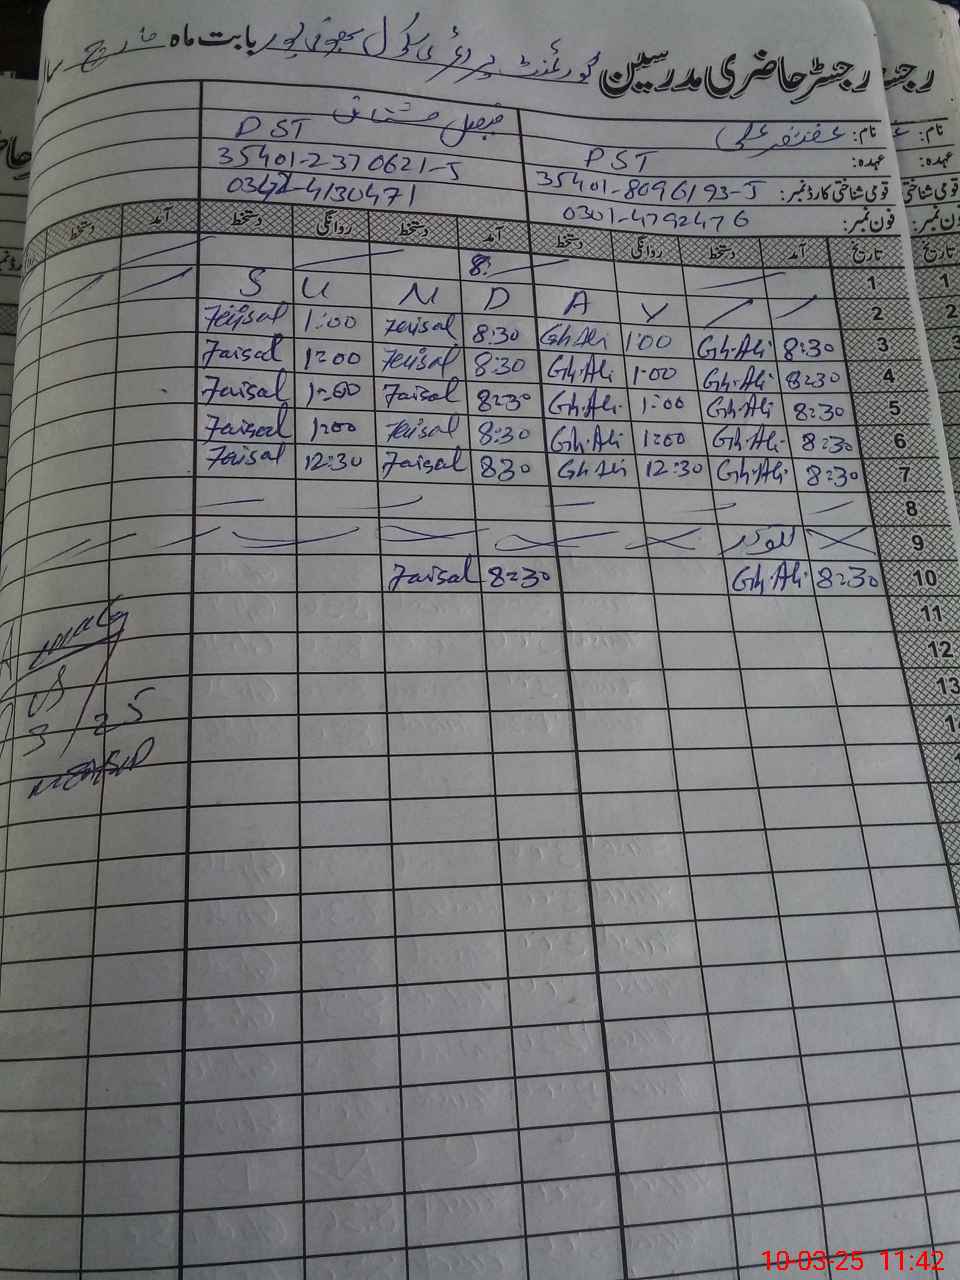 رجسٹر حاضری مدرسین گورنمنٹ پرائمری سکول بابت ماہ مارچ
نام: غضنفر علی فیصل مشتاق
عہدہ: PST PST
قومی شناختی کارڈ نمبر: 35401-8096193-5 35401-2370621-5
فون نمبر: 0301-4792476 0342-4130471
تاریخ آمد دستخط روانگی دستخط آمد دستخط روانگی دستخط آمد دستخط
1 8:
2 S U N D A Y
3 8:30 Gh.Ali 1:00 Gh.Ali 8:30 Faisal 1:00 Faisal
4 8:30 Gh.Ali 1:00 Gh.Ali 8:30 Faisal 1:00 Faisal
5 8:30 Gh.Ali 1:00 Gh.Ali 8:30 Faisal 1:00 Faisal
6 8:30 Gh.Ali 1:00 Gh.Ali 8:30 Faisal 1:00 Faisal
7 8:30 Gh.Ali 12:30 Gh.Ali 8:30 Faisal 12:30 Faisal
8
9
10 8:30 Gh.Ali 8:30 Faisal
11
12
13
3/25
10-03-25 11:42